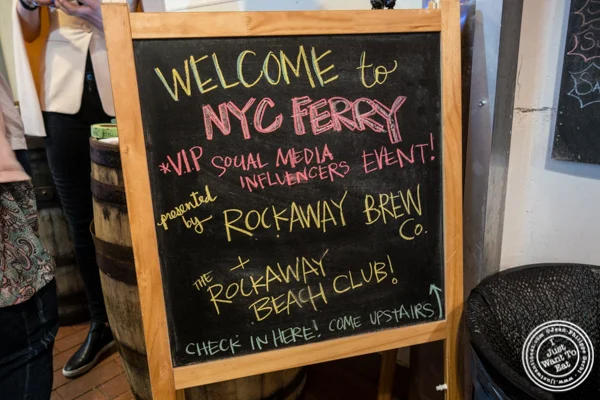 WELCOME to
NYC FERRY
*V.I.P SOCIAL MEDIA
INFLUENCERS EVENT!
presented
by
ROCKAWAY BREW
Co.
+
THE ROCKAWAY
BEACH CLUB!
CHECK IN HERE! COME UPSTAIRS ↑
I
Just
Want To
Eat